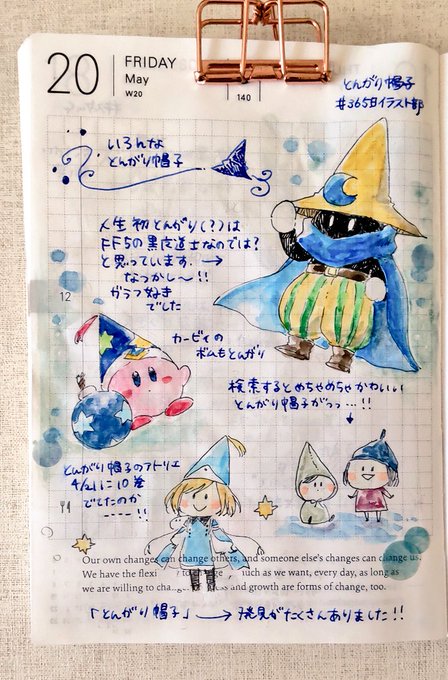 20
FRIDAY
May
W20
140
とんがり帽子
#365日イラスト部
いろんな
とんがり帽子
人生初とんがり(?)は
FF5の黒魔道士なのでは?
と思っています. →
なつかし〜!!
がらフ好き
でした
12
カービィの
ボムもとんがり
検索するとめちゃめちゃかわいい
とんがり帽子がっっ…!!
↓
とんがり帽子のアトリエ
4/21に10巻
でてたのか
----!!
Our own changes can change others, and someone else's changes can change us.
We have the flexi such as we want, every day, as long as
we are willing to cha ess and growth are forms of change, too.
「とんがり帽子」→ 発見がたくさんありました!!